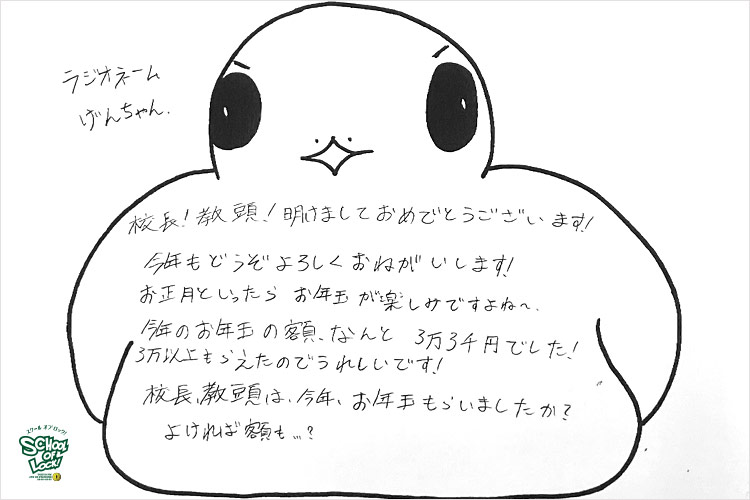 ラジオネーム
げんちゃん.
校長!教頭!明けましておめでとうございます!
今年もどうぞよろしくおねがいします!
お正月といったら お年玉が楽しみですよね〜、
今年のお年玉の額、なんと 3万3千円でした!
3万以上もらえたのでうれしいです!
校長、教頭は、今年、お年玉もらいましたか?
よければ額も…?
スクール オブ ロック!
SCHOOL
OF
LOCK!